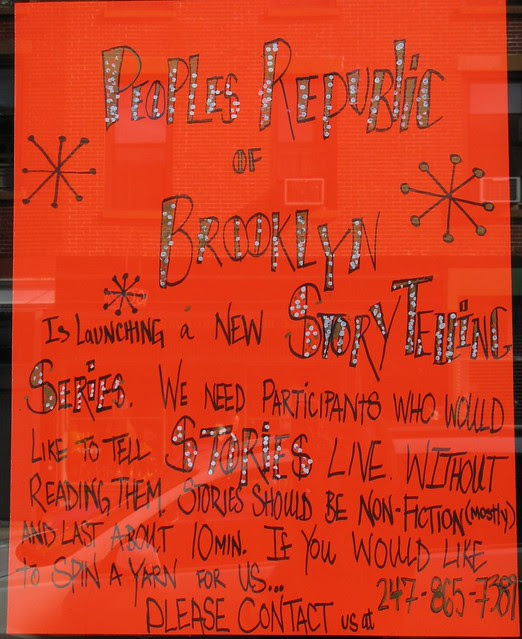 PEOPLES REPUBLIC
OF
BROOKLYN
IS LAUNCHING a NEW STORYTELLING
SERIES. WE NEED PARTICIPANTS WHO WOULD
LIKE TO TELL STORIES LIVE. WITHOUT
READING THEM. STORIES SHOULD BE NON-FICTION (MOSTLY)
AND LAST ABOUT 10 MIN. IF YOU WOULD LIKE
TO SPIN A YARN FOR US...
PLEASE CONTACT us at 247-865-7389